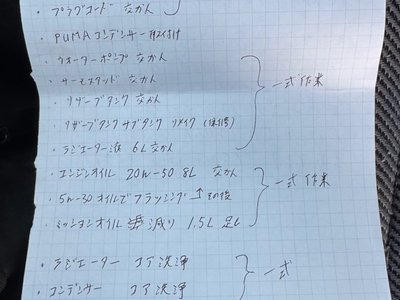 ・プラグコード 交かん
・PUMAコンデンサー取付け
・ウオーターポンプ 交かん
・サーモスタッド 交かん
・リザーブタンク 交かん
・リザーブタンク サブタンク リメイク (補修)
一式作業
・ラジエーター液 6L 交かん
・エンジンオイル 20w-50 8L 交かん
・5w-30オイルでフラッシング↑その後
一式 作業
・ミッションオイル 減り 1.5L 足し
・ラジエーター コア洗浄
・コンデンサー コア洗浄
一式